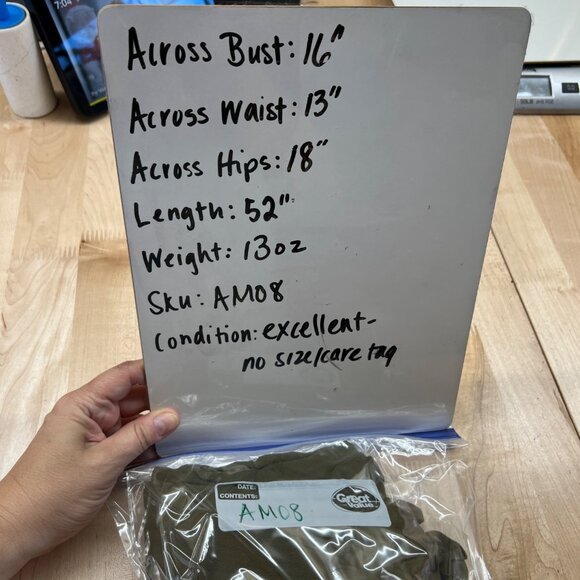 7:04
Across Bust: 16"
Across Waist: 13"
Across Hips: 18"
Length: 52"
Weight: 13oz
Sku: AM08
Condition: excellent-
no size/care tag
DATE:
CONTENTS:
AM08
Great
Value